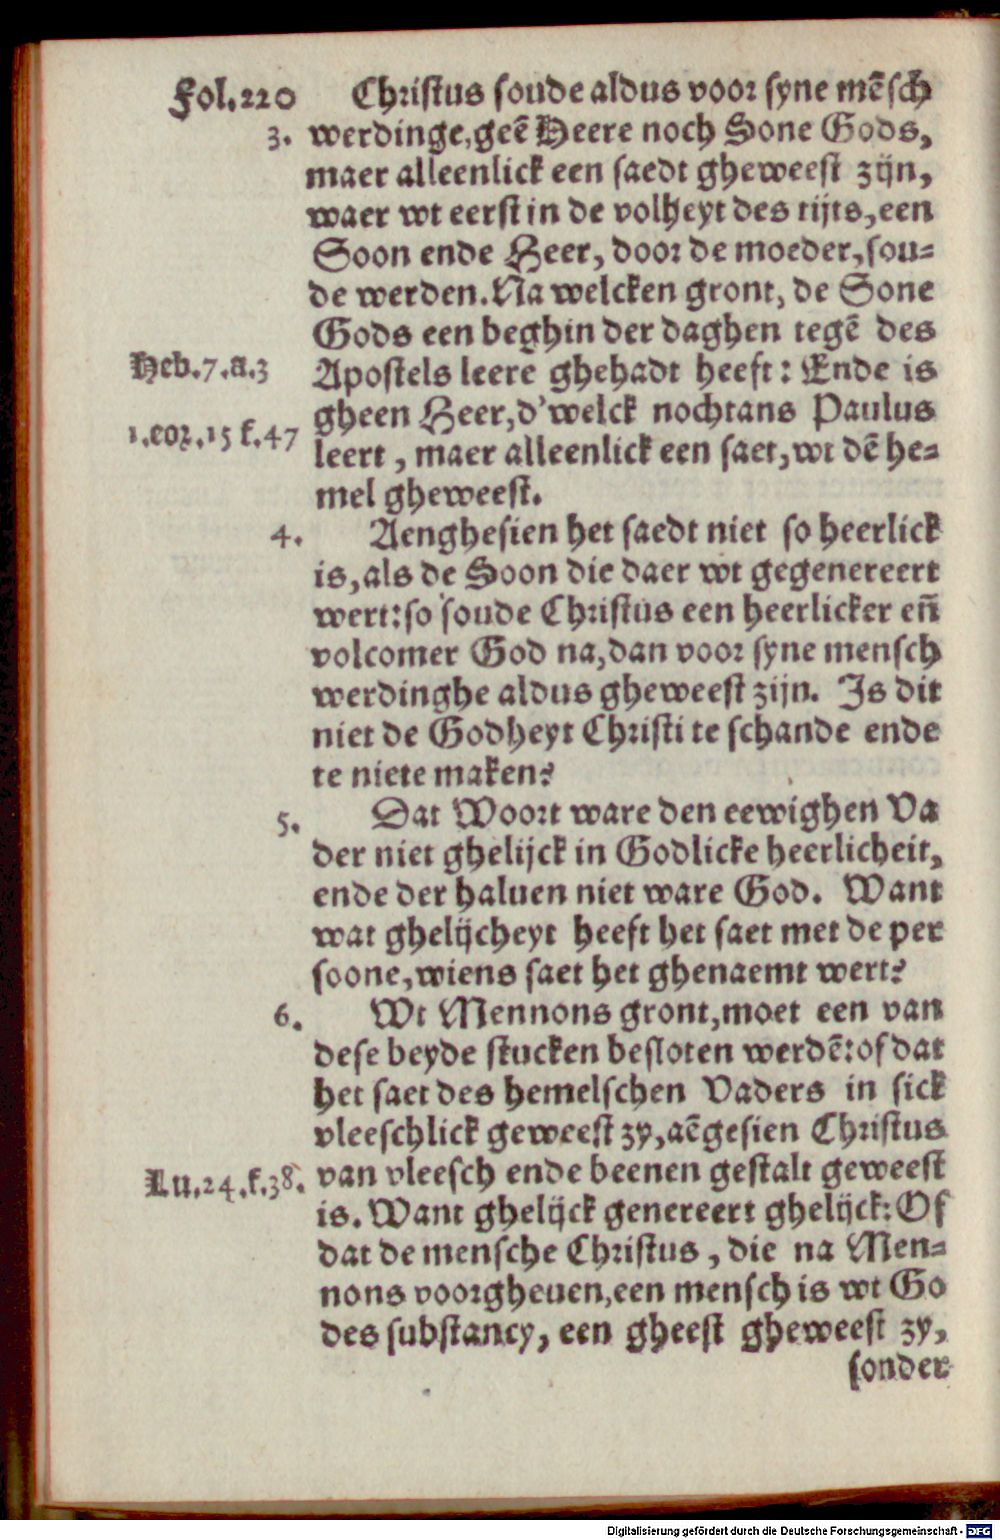 Fol.220 Christus soude aldus voor syne mēsch
3. werdinge, geē Heere noch Sone Gods,
maer alleenlick een saedt gheweest zijn,
waer wt eerst in de volheyt des tijts, een
Soon ende Heer, door de moeder, sou-
de werden. Na welcken gront, de Sone
Gods een beghin der daghen tegē des
Heb.7.a.3 Apostels leere ghehadt heeft: Ende is
gheen Heer, d'welck nochtans Paulus
1.cor.15 f.47 leert, maer alleenlick een saet, wt dē he-
mel gheweest.
4. Aenghesien het saedt niet so heerlick
is, als de Soon die daer wt gegenereert
wert: so soude Christus een heerlicker eñ
volcomer God na, dan voor syne mensch
werdinghe aldus gheweest zijn. Is dit
niet de Godheyt Christi te schande ende
te niete maken?
5. Dat Woort ware den eewighen Va
der niet ghelijck in Godlicke heerlicheit,
ende der haluen niet ware God. Want
wat ghelijcheyt heeft het saet met de per
soone, wiens saet het ghenaemt wert?
6. Wt Mennons gront, moet een van
dese beyde stucken besloten werdē: of dat
het saet des hemelschen Vaders in sick
vleeschlick geweest zy, aēgesien Christus
Lu.24.f.38. van vleesch ende beenen gestalt geweest
is. Want ghelijck genereert ghelijck: Of
dat de mensche Christus, die na Men-
nons voorgheuen, een mensch is wt Go
des substancy, een gheest gheweest zy,
sonder
Digitalisierung gefördert durch die Deutsche Forschungsgemeinschaft - DFG